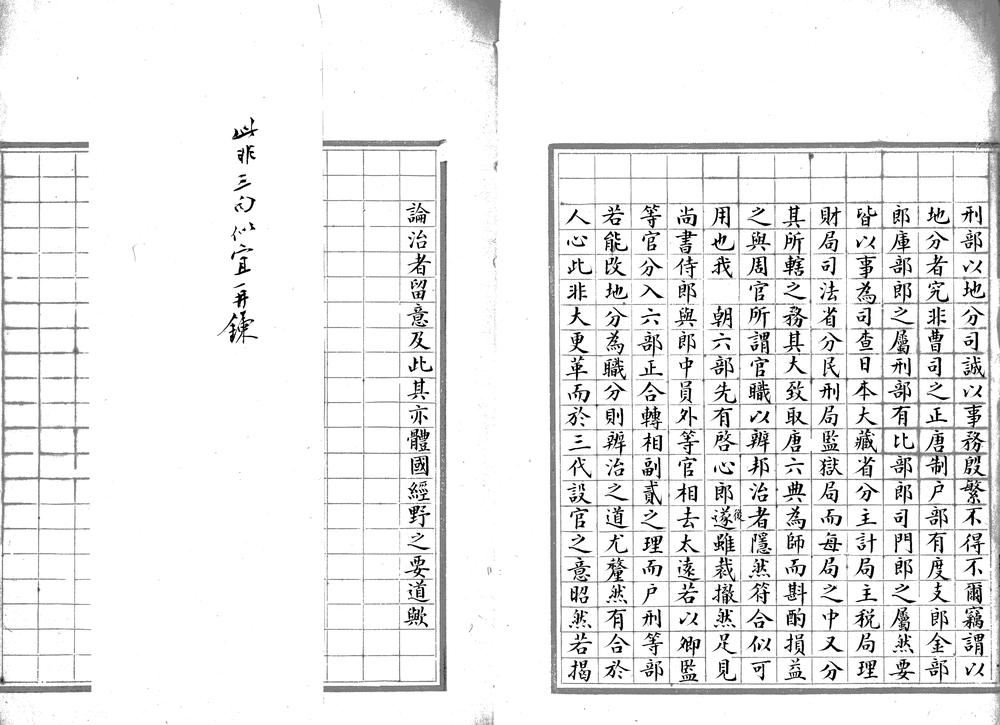 刑部以地分司誠以事務殷繁不得不爾竊謂以
地分者究非曹司之正唐制户部有度支郎金部
郎庫部郎之屬刑部有比部郎司門郎之屬然要
皆以事為司查日本大藏省分主計局主税局理
財局司法省分民刑局監獄局而每局之中又分
其所轄之務其大致取唐六典為師而斟酌損益
之與周官所謂官職以辨邦治者隱然符合似可
用也我　朝六部先有啓心郎遂後雖裁撤然足見
尚書侍郎與郎中員外等官相去太遠若以卿監
等官分入六部正合轉相副貳之理而户刑等部
若能改地分為職分則辨治之道尤釐然有合於
人心此非大更革而於三代設官之意昭然若揭
論治者留意及此其亦體國經野之要道歟
此非三句似宜再鍊